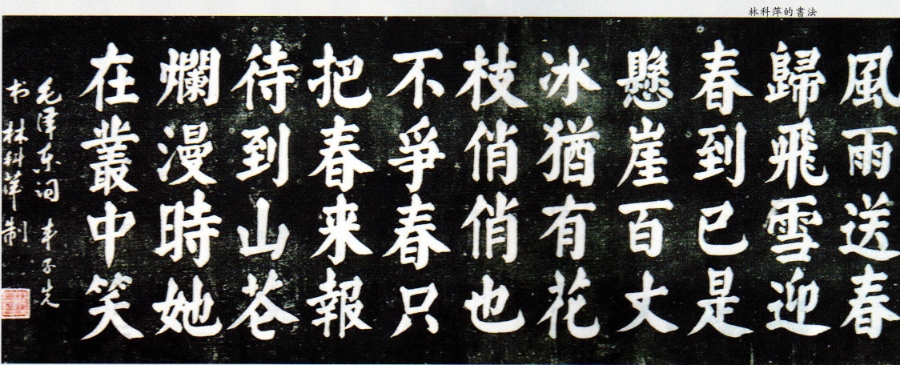 林科萍的書法
風雨送春
歸飛雪迎
春到已是
懸崖百丈
冰猶有花
枝俏俏也
不爭春只
把春来報
待到山花
爛漫時她
在叢中笑
毛澤东词
书 林科萍 制